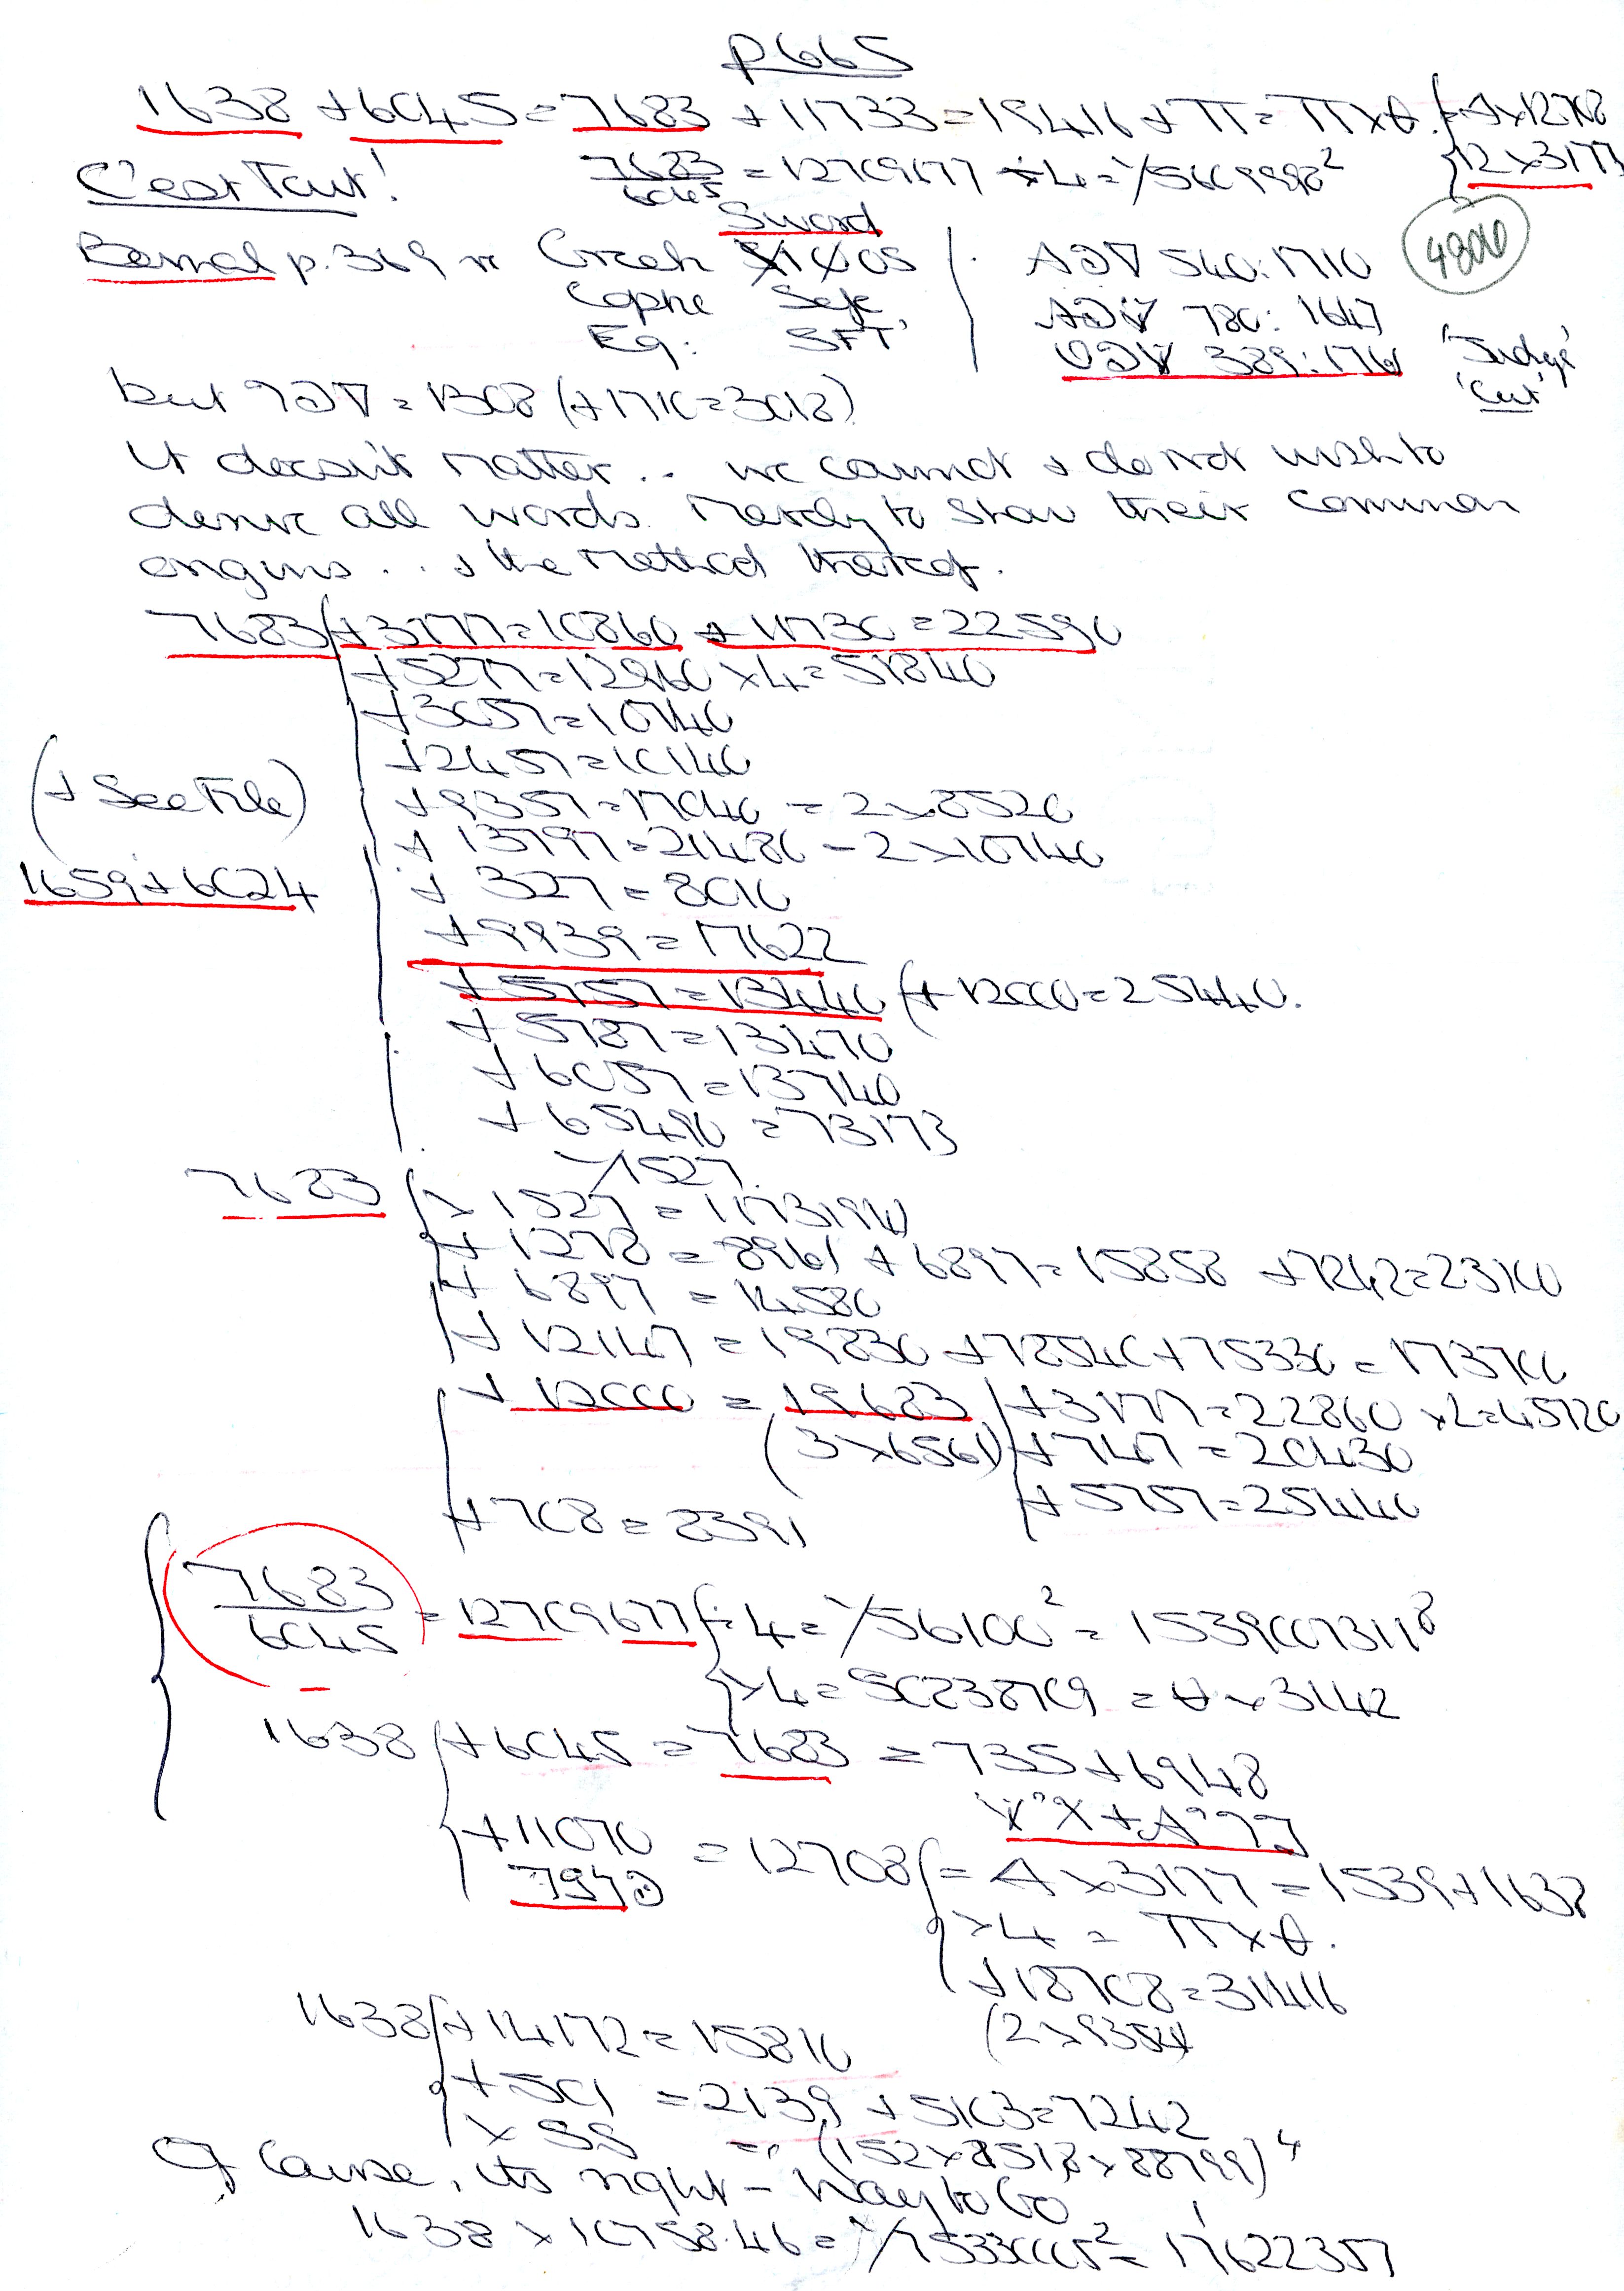 p665
1638 + 6045 = 7683 + 11733 = 19416 + π = π x θ. = Δ x 12708
C'est Tout! 7683/6045 = 12709677 ÷ 4 = √5609998² 12 x 3177
Sword 48000
Bernal p. 369 Greek 05 540: 1710
Copte Sefe 780: 1647
Eg: SFT 389: 1761 'Judge'
'Cut'
but = 1308 (+1710 = 3018)
It doesn't matter.. we cannot & do not wish to
derive all words. Merely to show their common
origins... & the method thereof.
7683 + 3177 = 10860 + 11730 = 22590
+ 5277 = 12960 x 4 = 51840
+ 3057 = 10740
+ 2457 = 10140
(+ See File) + 9357 = 17040 = 2 x 8520
+ 13797 = 21480 = 2 x 10740
1659 + 6024 + 327 = 8010
+ 9939 = 17622
+ 5757 = 13440 (+ 12000 = 25440.
+ 5787 = 13470
+ 6057 = 13740
+ 65490 = 73173
√1527
7683 x 1527 = 11731940
+ 1278 = 8961 + 6897 = 15858 + 7242 = 23100
+ 6897 = 14580
+ 12147 = 19830 + 78540 + 75330 = 173700
+ 12000 = 19683 + 3177 = 22860 x 2 = 45720
(3 x 6561) + 747 = 20430
+ 5757 = 25440
+ 708 = 8391
7683/6045 = 12709677 ÷ 4 = √56100² = 15390073118
x 4 = 50838709 = θ x 3142
1638 + 6045 = 7683 = 735 + 6948
+ 11070 = 12708 = Δ x 3177 = 1539 + 1638
x 4 = π x θ.
+ 18708 = 31416
1638 + 14172 = 15810 (2 x 9354)
+ 501 = 2139 + 5103 = 7242
x 55 = (152 x 8518 x 88799)⁴
Of Cause, its right - Way to Go
1638 x 10758.46 = √75330005² = 17622357